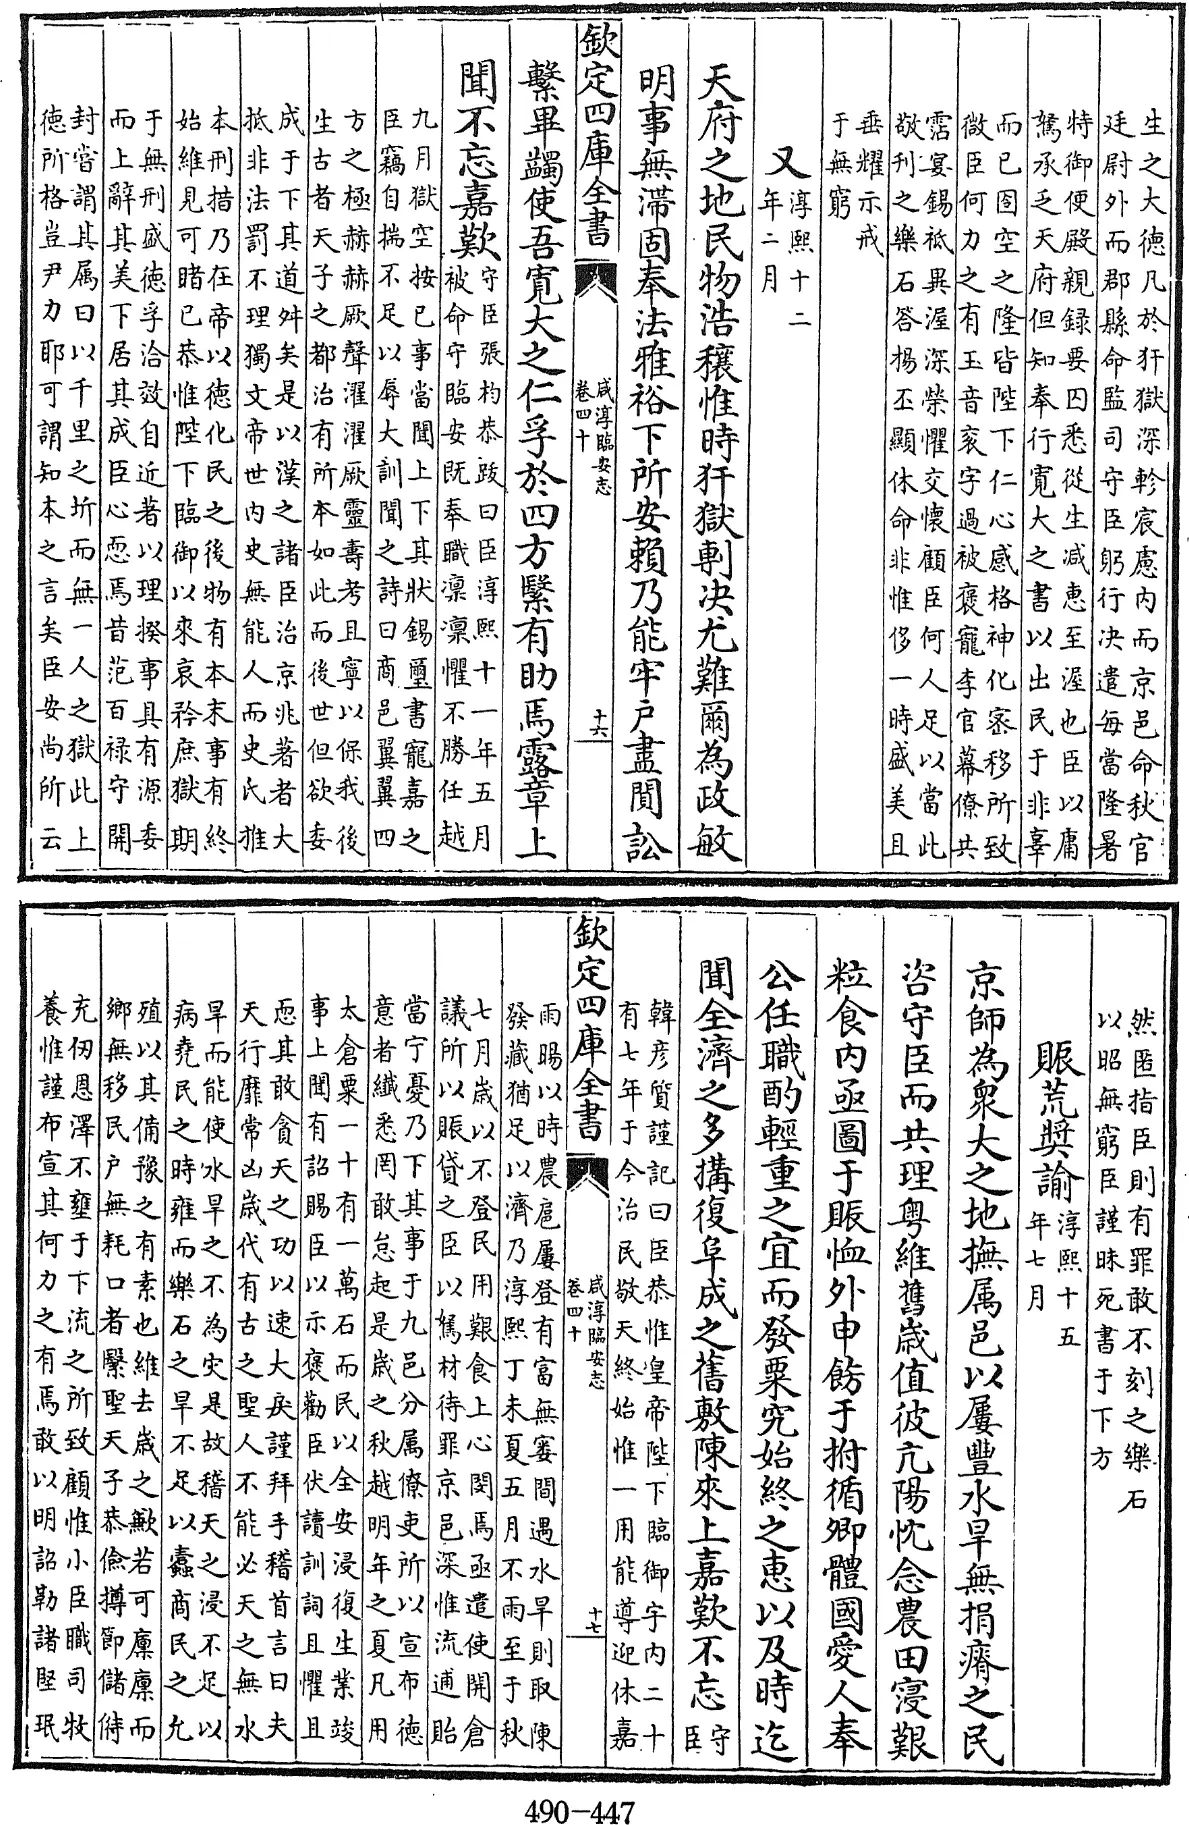 生之大德凡於犴獄深軫宸慮内而京邑命秋官
廷尉外而郡縣命監司守臣躬行决遣每當隆暑
特御便殿親録要囚悉從生减惠至渥也臣以庸
駑承乏天府但知奉行寛大之書以出民于非辜
而已囹空之隆皆陛下仁心感格神化宻移所致
微臣何力之有玉音衮字過被褒寵李官幕僚共
霑宴錫祇異渥深榮懼交懷顧臣何人足以當此
敬刊之樂石荅揚丕顯休命非惟侈一時盛美且
垂耀示戒
于無窮
又淳熙十二
年二月
天府之地民物浩穰惟時犴獄剸决尤難爾為政敏
明事無滯固奉法雅裕下所安賴乃能牢户晝閴訟
欽定四庫全書
咸淳臨安志
卷四十
十六
繫畢蠲使吾寛大之仁孚於四方繄有助焉露章上
聞不忘嘉歎守臣張杓恭跋曰臣淳熙十一年五月
被命守臨安既奉職凛凛懼不勝任越
九月獄空按已事當聞上下其狀錫璽書寵嘉之
臣竊自揣不足以辱大訓聞之詩曰商邑翼翼四
方之極赫赫厥聲濯濯厥靈夀考且寧以保我後
生古者天子之都治有所本如此而後世但欲委
成于下其道舛矣是以漢之諸臣治京兆著者大
抵非法罰不理獨文帝世内史無能人而史氏推
本刑措乃在帝以德化民之後物有本末事有終
始維見可睹已恭惟陛下臨御以來哀矜庶獄期
于無刑盛德孚洽效自近著以理揆事具有源委
而上辭其美下居其成臣心恧焉昔范百禄守開
封嘗謂其属曰以千里之圻而無一人之獄此上
德所格豈尹力耶可謂知本之言矣臣安尚所云
然匿指臣則有罪敢不刻之樂石
以昭無窮臣謹昧死書于下方
賑荒奬諭淳熙十五
年七月
京師為衆大之地撫属邑以屢豐水旱無捐瘠之民
咨守臣而共理粤維舊歲值彼亢陽忱念農田寖艱
粒食内亟圖于賑恤外申飭于拊循卿體國愛人奉
公任職酌輕重之宜而發粟究始終之惠以及時迄
聞全濟之多搆復阜成之舊敷陳來上嘉歎不忘守
臣
韓彦質謹記曰臣恭惟皇帝陛下臨御宇内二十
有七年于今治民敬天終始惟一用能導迎休嘉
欽定四庫全書
咸淳臨安志
卷四十
十七
雨暘以時農扈屢登有富無窶間遇水旱則取陳
發藏猶足以濟乃淳熙丁未夏五月不雨至于秋
七月歲以不登民用艱食上心閔焉亟遣使開倉
議所以賑貸之臣以駑材待罪京邑深惟流逋貽
當宁憂乃下其事于九邑分属僚吏所以宣布德
意者纎悉罔敢怠起是歲之秋越明年之夏凡用
太倉粟一十有一萬石而民以全安浸復生業竣
事上聞有詔賜臣以示褒勸臣伏讀訓詞且懼且
恧其敢貪天之功以速大戾謹拜手稽首言曰夫
天行靡常凶歲代有古之聖人不能必天之無水
旱而能使水旱之不為灾是故稽天之浸不足以
病堯民之時雍而樂石之旱不足以蠹商民之允
殖以其備豫之有素也維去歲之歉若可廩廩而
鄉無移民户無耗口者繄聖天子恭儉撙節儲偫
充仞恩澤不壅于下流之所致顧惟小臣職司牧
養惟謹布宣其何力之有焉敢以明詔勒諸堅珉
490-447